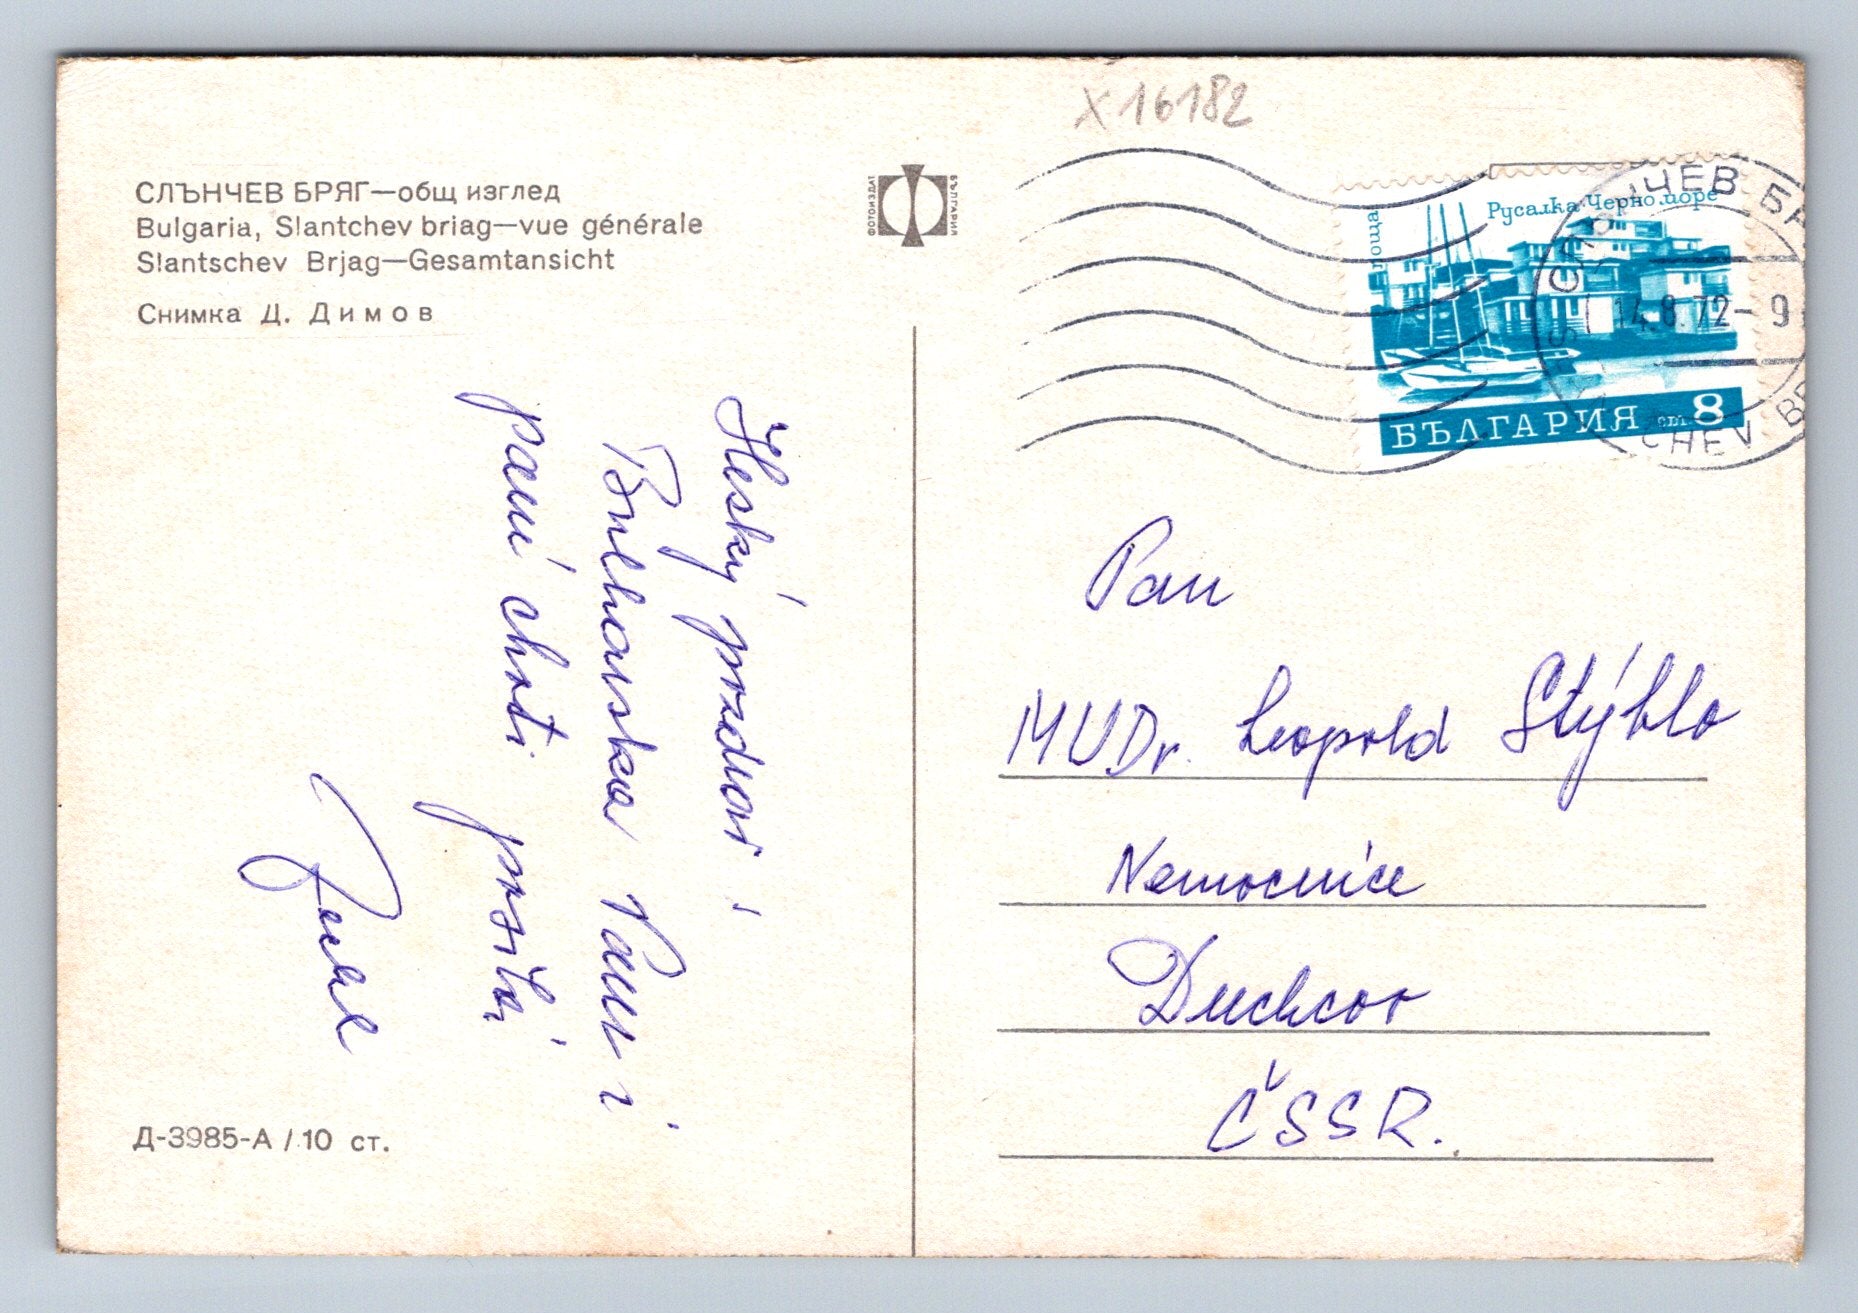 X 16182
СЛЪНЧЕВ БРЯГ—общ изглед
Bulgaria, Slantchev briag—vue générale
Slantschev Brjag—Gesamtansicht
Снимка Д. Димов
ФОТОИЗДАТ
БЪЛГАРИЯ
поща
Русалка Черно море
БЪЛГАРИЯ ст 8
ЧЕВ БР
14.8.72-9
CHEV BR
Hezký pozdrav z
Bulharska Vám i
paní choti posílá
Pan
MUDr. Leopold Stýblo
Nemocnice
Duchcov
ČSSR.
Д-3985-А / 10 ст.